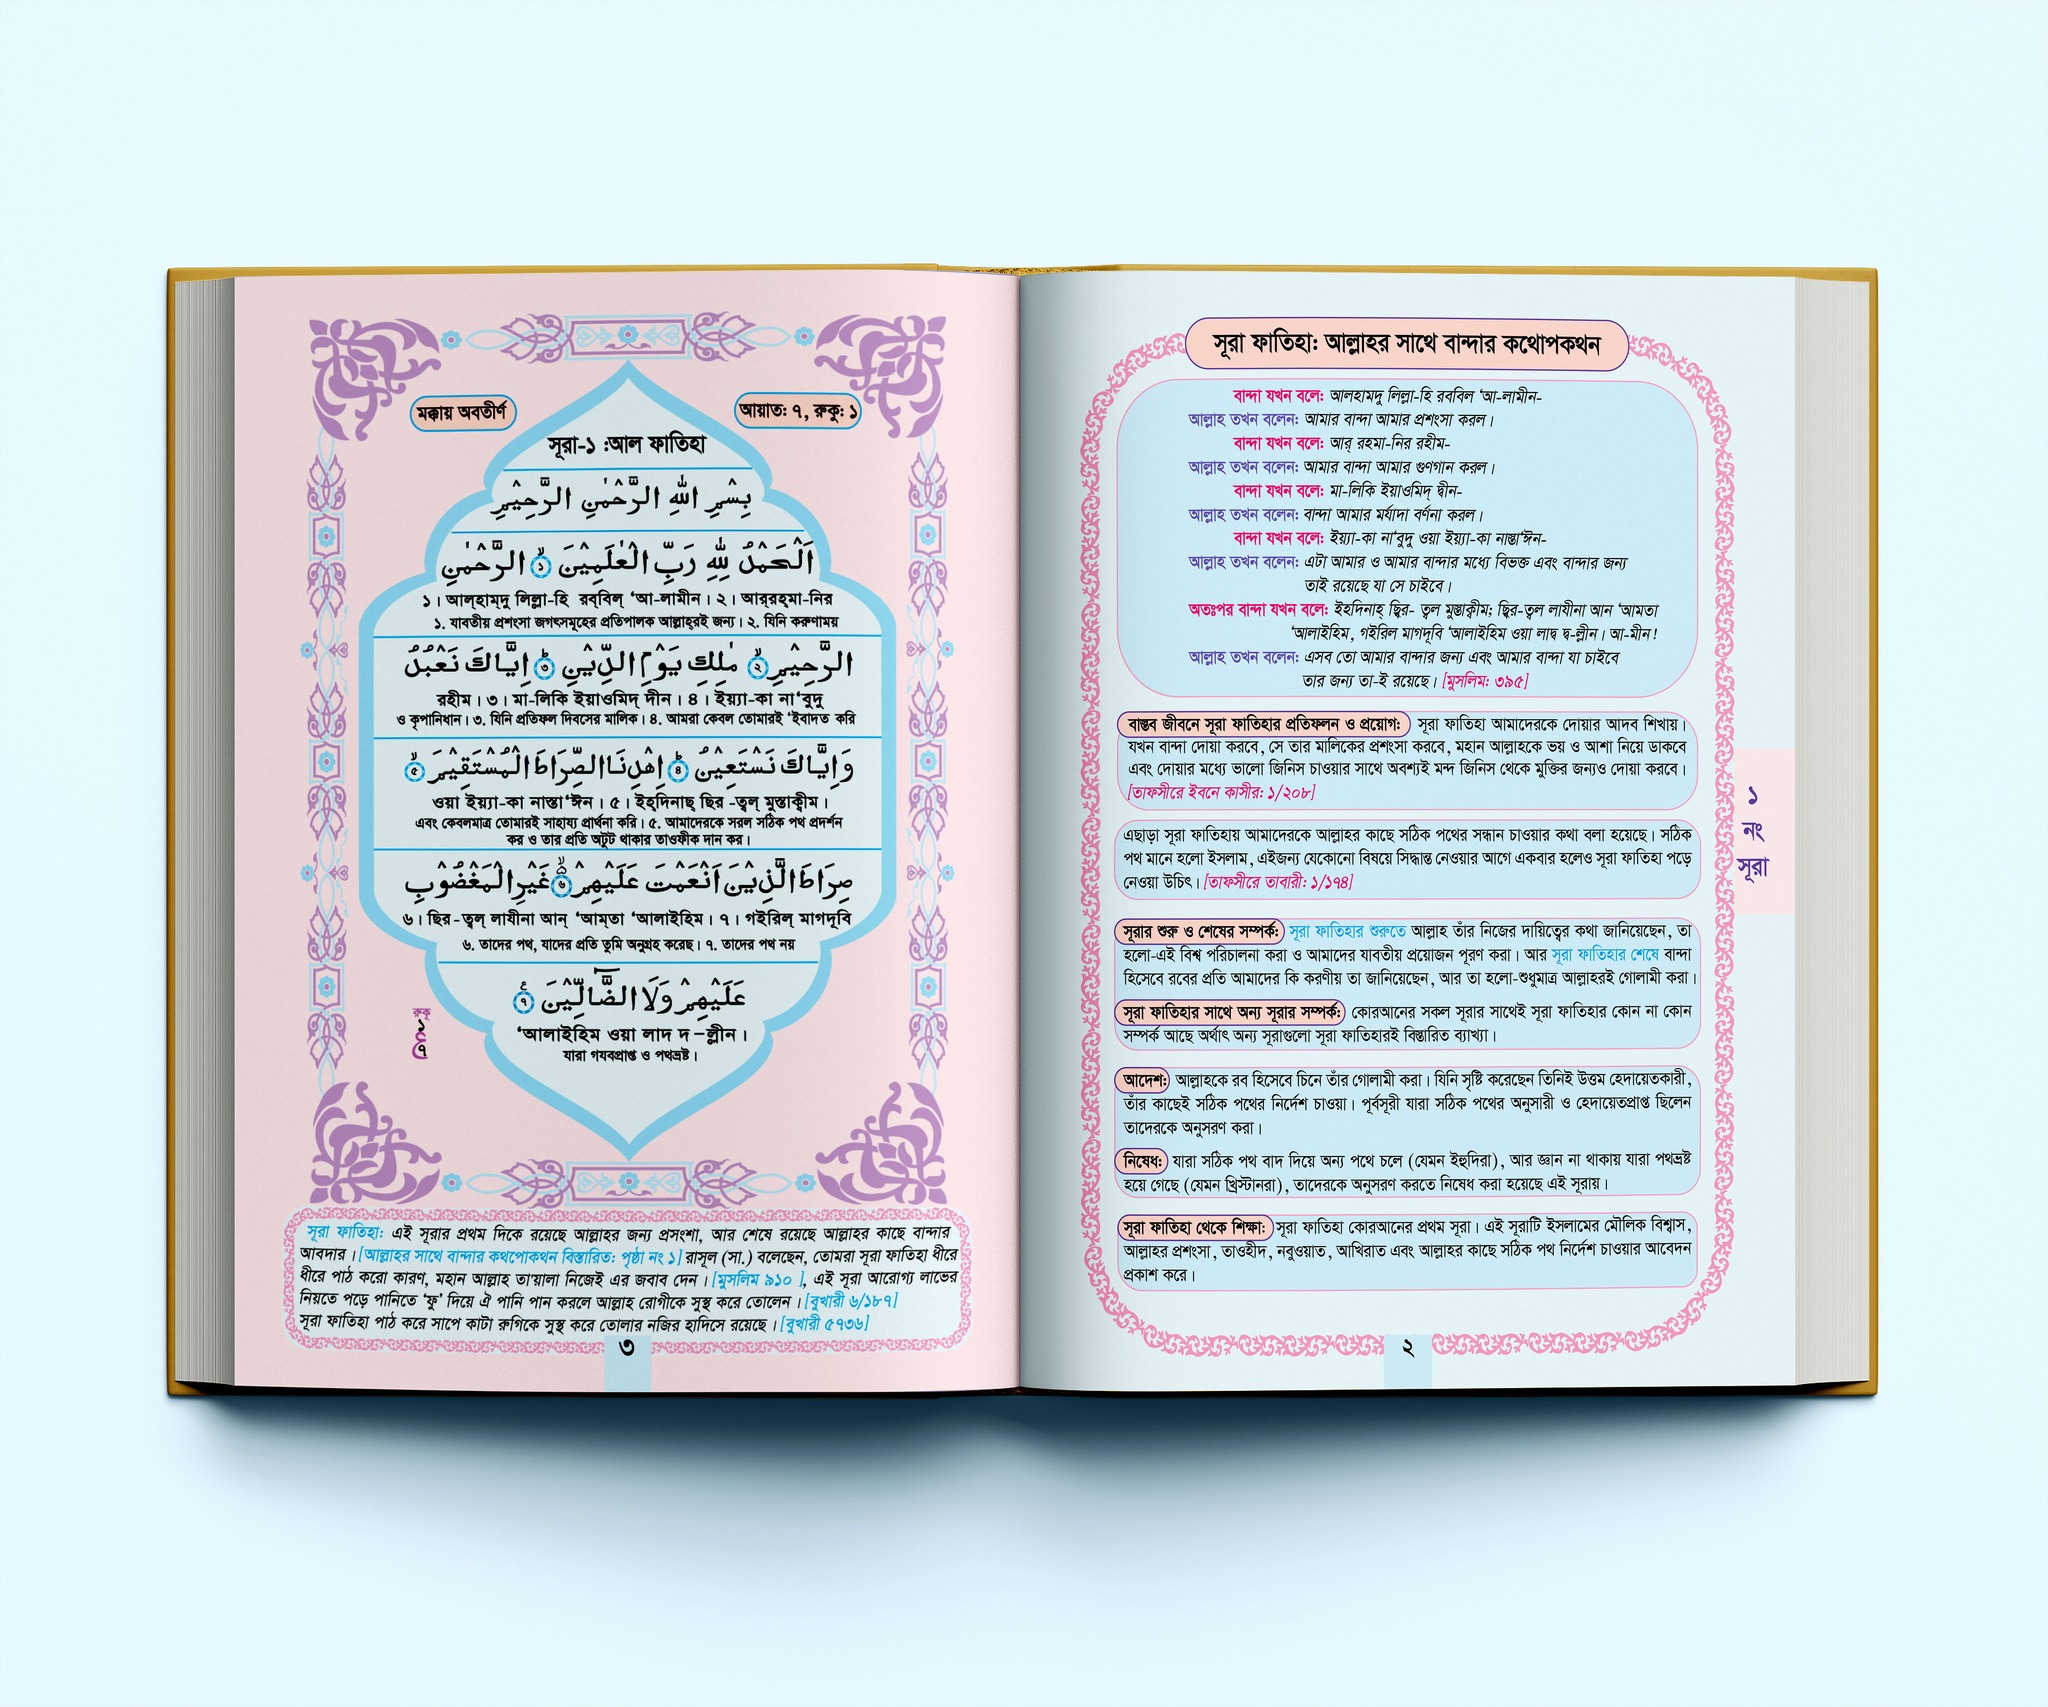 সূরা ফাতিহা: আল্লাহর সাথে বান্দার কথোপকথন
বান্দা যখন বলে: আলহামদু লিল্লা-হি রববিল ‘আ-লামীন-
আল্লাহ তখন বলেন: আমার বান্দা আমার প্রশংসা করল।
বান্দা যখন বলে: আর্ রহমা-নির রহীম-
আল্লাহ তখন বলেন: আমার বান্দা আমার গুণগান করল।
বান্দা যখন বলে: মা-লিকি ইয়াওমিদ্ দ্বীন-
আল্লাহ তখন বলেন: বান্দা আমার মর্যাদা বর্ণনা করল।
বান্দা যখন বলে: ইয়্যা-কা না‘বুদু ওয়া ইয়্যা-কা নাস্তা‘ঈন-
আল্লাহ তখন বলেন: এটা আমার ও আমার বান্দার মধ্যে বিভক্ত এবং বান্দার জন্য
তাই রয়েছে যা সে চাইবে।
অতঃপর বান্দা যখন বলে: ইহদিনাহ্ ছ্বির- ত্বল মুস্তাক্বীম; ছ্বির-ত্বল লাযীনা আন ‘আমতা
‘আলাইহিম, গইরিল মাগদূবি ‘আলাইহিম ওয়া লাদ্ব দ্ব-ল্লীন। আ-মীন!
আল্লাহ তখন বলেন: এসব তো আমার বান্দার জন্য এবং আমার বান্দা যা চাইবে
তার জন্য তা-ই রয়েছে। [মুসলিম: ৩৯৫]
বাস্তব জীবনে সূরা ফাতিহার প্রতিফলন ও প্রয়োগ: সূরা ফাতিহা আমাদেরকে দোয়ার আদব শিখায়।
যখন বান্দা দোয়া করবে, সে তার মালিকের প্রশংসা করবে, মহান আল্লাহকে ভয় ও আশা নিয়ে ডাকবে
এবং দোয়ার মধ্যে ভালো জিনিস চাওয়ার সাথে অবশ্যই মন্দ জিনিস থেকে মুক্তির জন্যও দোয়া করবে।
[তাফসীরে ইবনে কাসীর: ১/২০৮]
এছাড়া সূরা ফাতিহায় আমাদেরকে আল্লাহর কাছে সঠিক পথের সন্ধান চাওয়ার কথা বলা হয়েছে। সঠিক
পথ মানে হলো ইসলাম, এইজন্য যেকোনো বিষয়ে সিদ্ধান্ত নেওয়ার আগে একবার হলেও সূরা ফাতিহা পড়ে
নেওয়া উচিৎ। [তাফসীরে তাবারী: ১/১৭৪]
সূরার শুরু ও শেষের সম্পর্ক: সূরা ফাতিহার শুরুতে আল্লাহ তাঁর নিজের দায়িত্বের কথা জানিয়েছেন, তা
হলো-এই বিশ্ব পরিচালনা করা ও আমাদের যাবতীয় প্রয়োজন পূরণ করা। আর সূরা ফাতিহার শেষে বান্দা
হিসেবে রবের প্রতি আমাদের কি করণীয় তা জানিয়েছেন, আর তা হলো-শুধুমাত্র আল্লাহরই গোলামী করা।
সূরা ফাতিহার সাথে অন্য সূরার সম্পর্ক: কোরআনের সকল সূরার সাথেই সূরা ফাতিহার কোন না কোন
সম্পর্ক আছে অর্থাৎ অন্য সূরাগুলো সূরা ফাতিহারই বিস্তারিত ব্যাখ্যা।
আদেশ: আল্লাহকে রব হিসেবে চিনে তাঁর গোলামী করা। যিনি সৃষ্টি করেছেন তিনিই উত্তম হেদায়েতকারী,
তাঁর কাছেই সঠিক পথের নির্দেশ চাওয়া। পূর্বসূরী যারা সঠিক পথের অনুসারী ও হেদায়েতপ্রাপ্ত ছিলেন
তাদেরকে অনুসরণ করা।
নিষেধ: যারা সঠিক পথ বাদ দিয়ে অন্য পথে চলে (যেমন ইহুদিরা), আর জ্ঞান না থাকায় যারা পথভ্রষ্ট
হয়ে গেছে (যেমন খ্রিস্টানরা), তাদেরকে অনুসরণ করতে নিষেধ করা হয়েছে এই সূরায়।
সূরা ফাতিহা থেকে শিক্ষা: সূরা ফাতিহা কোরআনের প্রথম সূরা। এই সূরাটি ইসলামের মৌলিক বিশ্বাস,
আল্লাহর প্রশংসা, তাওহীদ, নবুওয়াত, আখিরাত এবং আল্লাহর কাছে সঠিক পথ নির্দেশ চাওয়ার আবেদন
প্রকাশ করে।
১
নং
সূরা
২
মক্কায় অবতীর্ণ
আয়াত: ৭, রুকু: ১
সূরা-১ :আল ফাতিহা
بِسْمِ اللهِ الرَّحْمٰنِ الرَّحِيْمِ
اَلْحَمْدُ لِلّٰهِ رَبِّ الْعٰلَمِيْنَ ۙ১ الرَّحْمٰنِ
১। আল্হাম্দু লিল্লা-হি রব্বিল্ ‘আ-লামীন। ২। আর্রহ্মা-নির
১. যাবতীয় প্রশংসা জগৎসমূহের প্রতিপালক আল্লাহ্রই জন্য। ২. যিনি করুণাময়
الرَّحِيْمِ ۙ২ مٰلِكِ يَوْمِ الدِّيْنِ ؕ৩ اِيَّاكَ نَعْبُدُ
রহীম। ৩। মা-লিকি ইয়াওমিদ্ দীন। ৪। ইয়্যা-কা না‘বুদু
ও কৃপানিধান। ৩. যিনি প্রতিফল দিবসের মালিক। ৪. আমরা কেবল তোমারই ‘ইবাদত করি
وَاِيَّاكَ نَسْتَعِيْنُ ؕ৪ اِهْدِنَا الصِّرَاطَ الْمُسْتَقِيْمَ ۙ৫
ওয়া ইয়্যা-কা নাস্তা‘ঈন। ৫। ইহ্দিনাছ্ ছির -ত্বল্ মুস্তাক্বীম।
এবং কেবলমাত্র তোমারই সাহায্য প্রার্থনা করি। ৫. আমাদেরকে সরল সঠিক পথ প্রদর্শন
কর ও তার প্রতি অটুট থাকার তাওফীক দান কর।
صِرَاطَ الَّذِيْنَ اَنْعَمْتَ عَلَيْهِمْ ۙ৬ غَيْرِ الْمَغْضُوْبِ
৬। ছির-ত্বল্ লাযীনা আন্ ‘আম্তা ‘আলাইহিম। ৭। গইরিল্ মাগদূবি
৬. তাদের পথ, যাদের প্রতি তুমি অনুগ্রহ করেছ। ৭. তাদের পথ নয়
عَلَيْهِمْ وَلَا الضَّآلِّيْنَ ৭
‘আলাইহিম ওয়া লাদ দ –ল্লীন।
যারা গযবপ্রাপ্ত ও পথভ্রষ্ট।
রুকু
১
৭
সূরা ফাতিহা: এই সূরার প্রথম দিকে রয়েছে আল্লাহর জন্য প্রসংশা, আর শেষে রয়েছে আল্লাহর কাছে বান্দার
আবদার। [আল্লাহর সাথে বান্দার কথপোকথন বিস্তারিত: পৃষ্ঠা নং ১] রাসূল (সা.) বলেছেন, তোমরা সূরা ফাতিহা ধীরে
ধীরে পাঠ করো কারণ, মহান আল্লাহ তা’য়ালা নিজেই এর জবাব দেন। [মুসলিম ৯১০ ], এই সূরা আরোগ্য লাভের
নিয়তে পড়ে পানিতে ‘ফু’ দিয়ে ঐ পানি পান করলে আল্লাহ রোগীকে সুস্থ করে তোলেন। [বুখারী ৬/১৮৭]
সূরা ফাতিহা পাঠ করে সাপে কাটা রুগিকে সুস্থ করে তোলার নজির হাদিসে রয়েছে। [বুখারী ৫৭৩৬]
৩